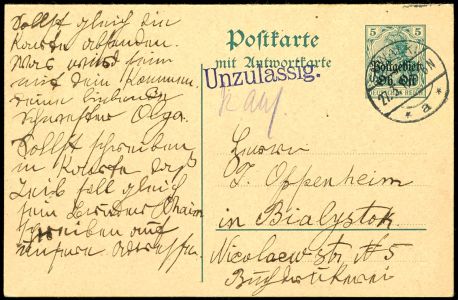 Sollst gleich die
Karte absenden.
Was wird sein
mit dein Kommen.
deine liebende
Schwester Olga.
Sollst schreiben
in Karte daß
Leib soll gleich
sein Bruder Chaim
schreiben auf
unsere Adresse.
Postkarte
mit Antwortkarte
Unzulässig.
5 5
Postgebiet
Ob. Ost
DEUTSCHES REICH
* a *
Herrn
T. Oppenheim
in Bialystok.
Nicolaewstr # 5
Buchdruckerei